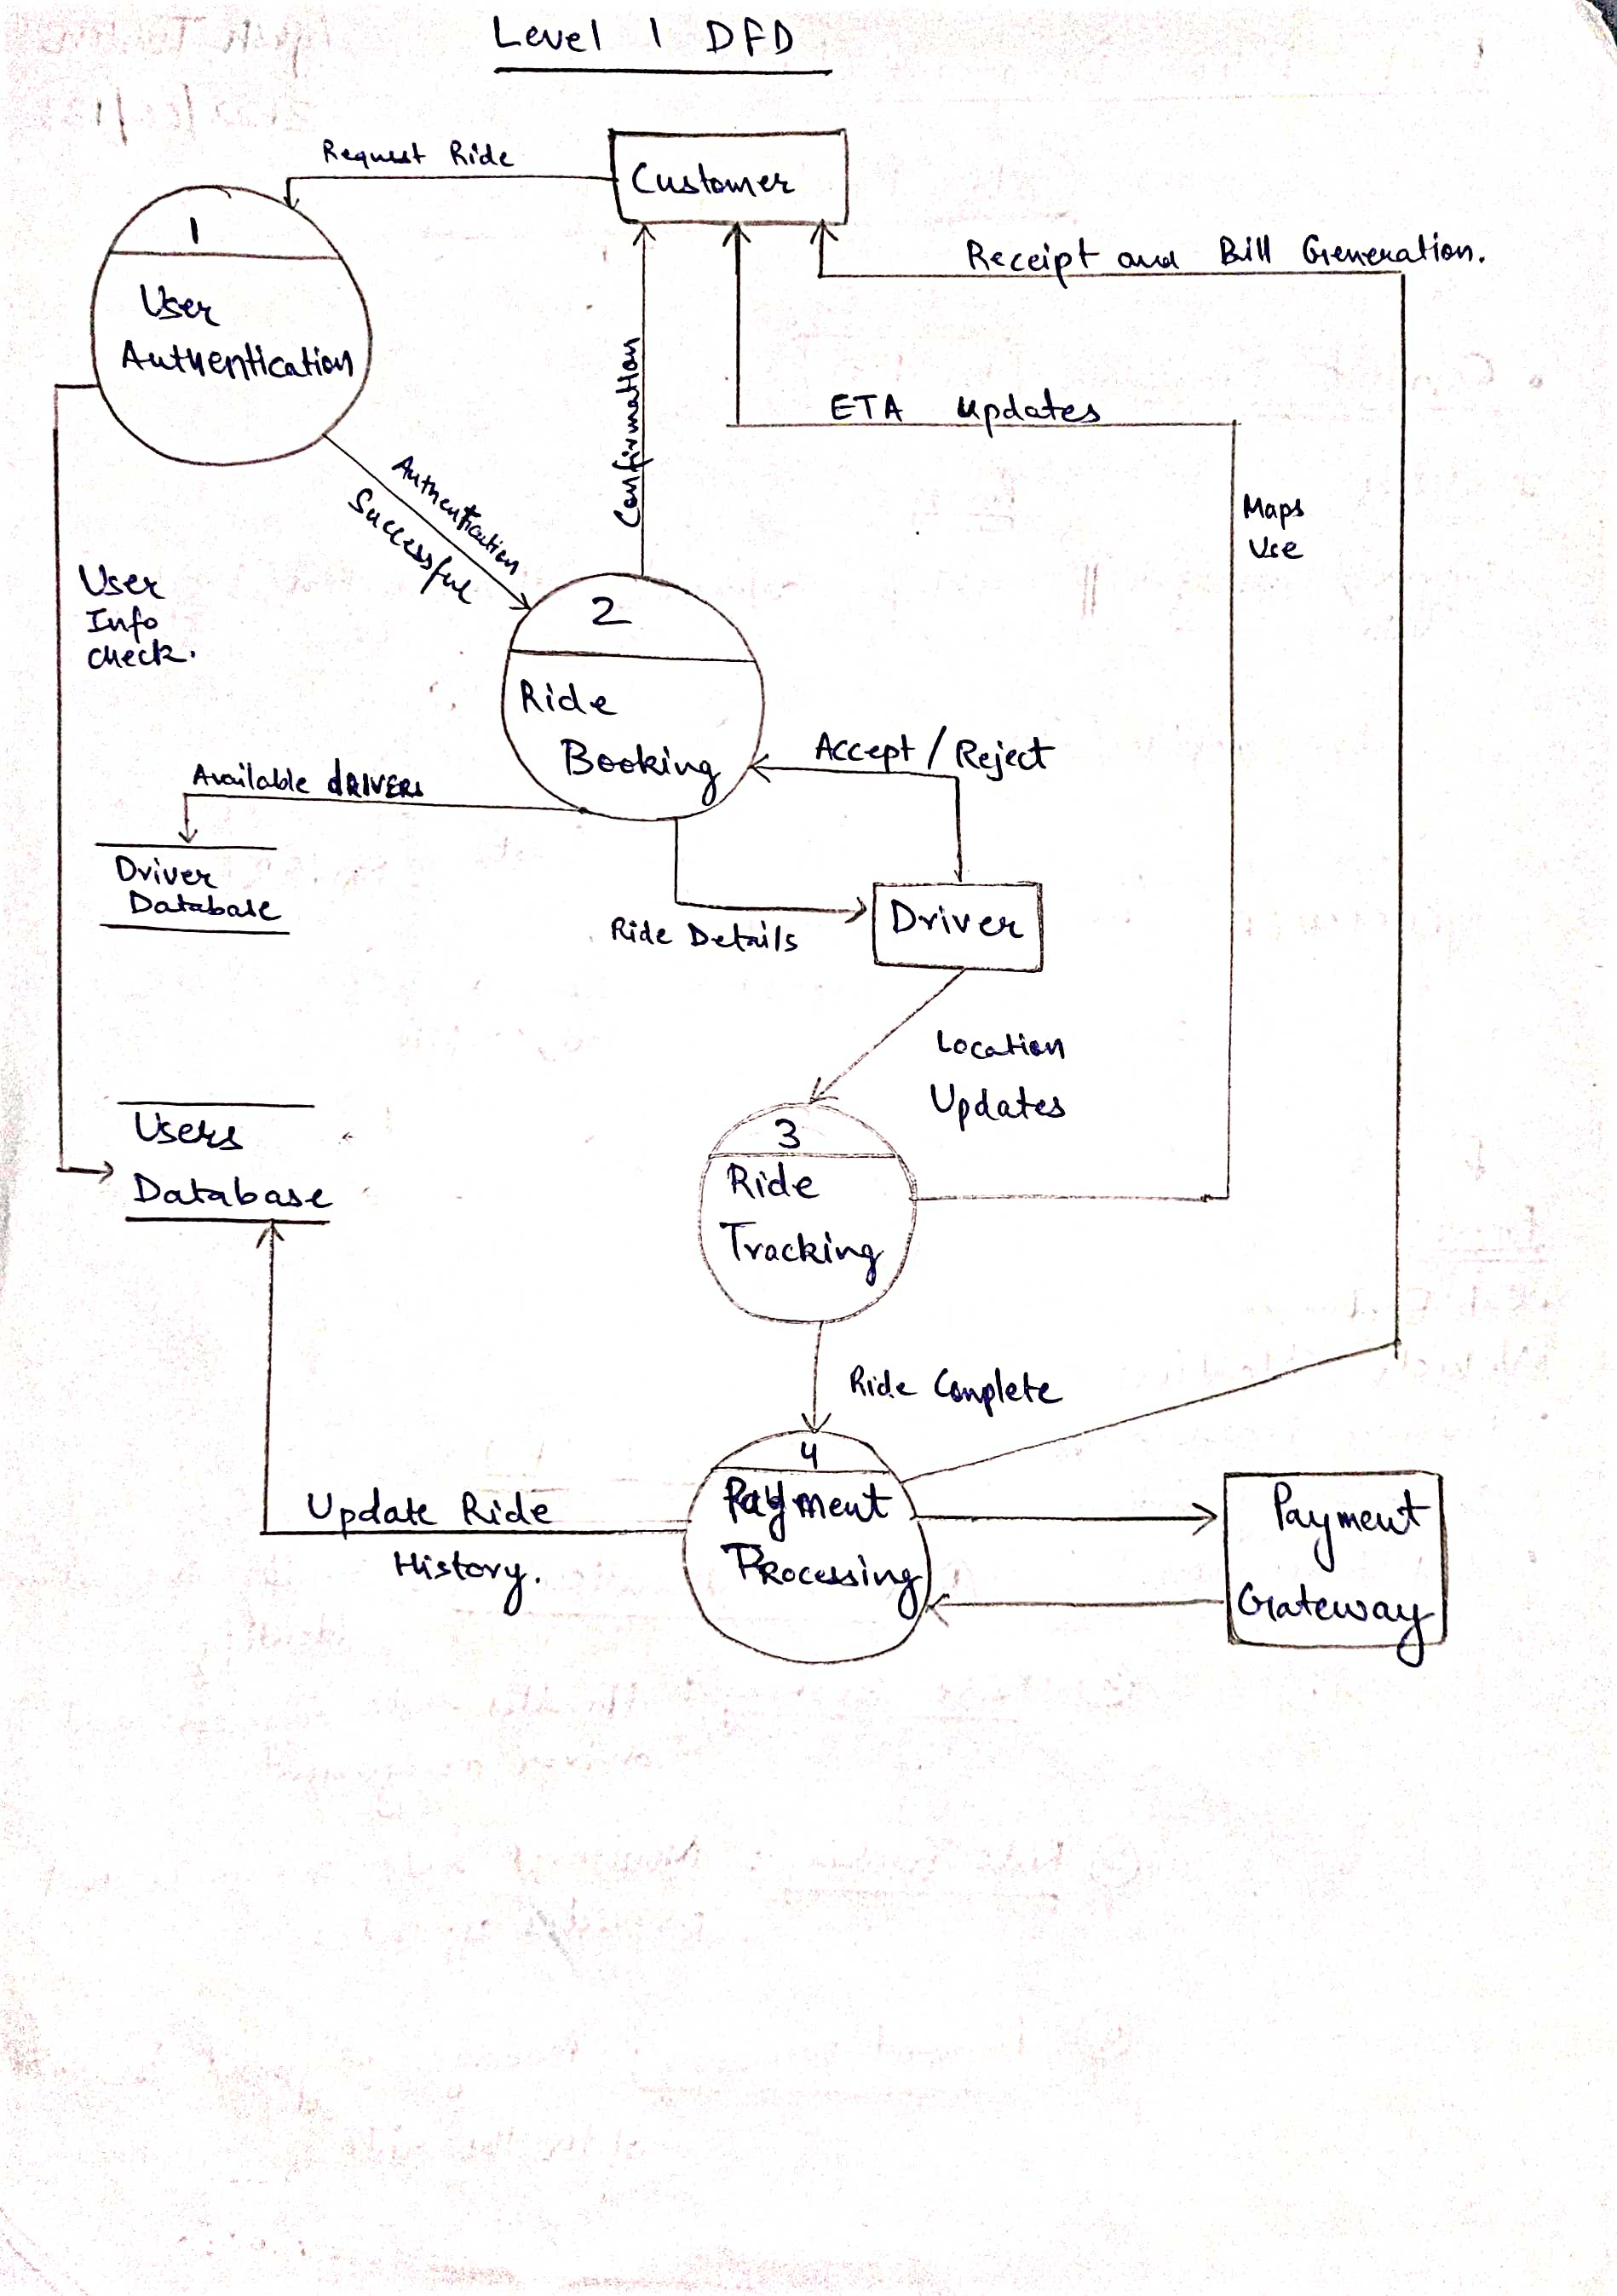 Level 1 DFD
Request Ride
Customer
1
User
Authentication
Receipt and Bill Generation.
Confirmation
ETA updates
Maps
Use
Authentication
Successful
User
Info
check.
2
Ride
Booking
Accept / Reject
Available dRIVERs
Driver
Database
Ride Details
Driver
Location
Updates
Users
Database
3
Ride
Tracking
Ride Complete
4
Payment
Processing
Update Ride
History.
Payment
Gateway